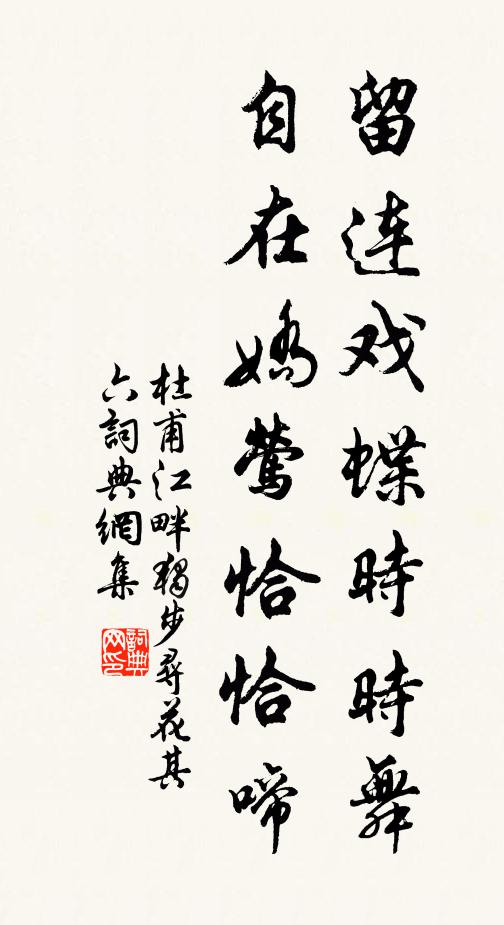 留连戏蝶時時舞
自在嬌莺恰恰啼
杜甫江畔獨步尋花其
六詞典網集
詞典网印